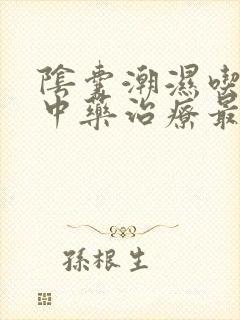 陰囊潮濕喫
中藥治療最
孫根生